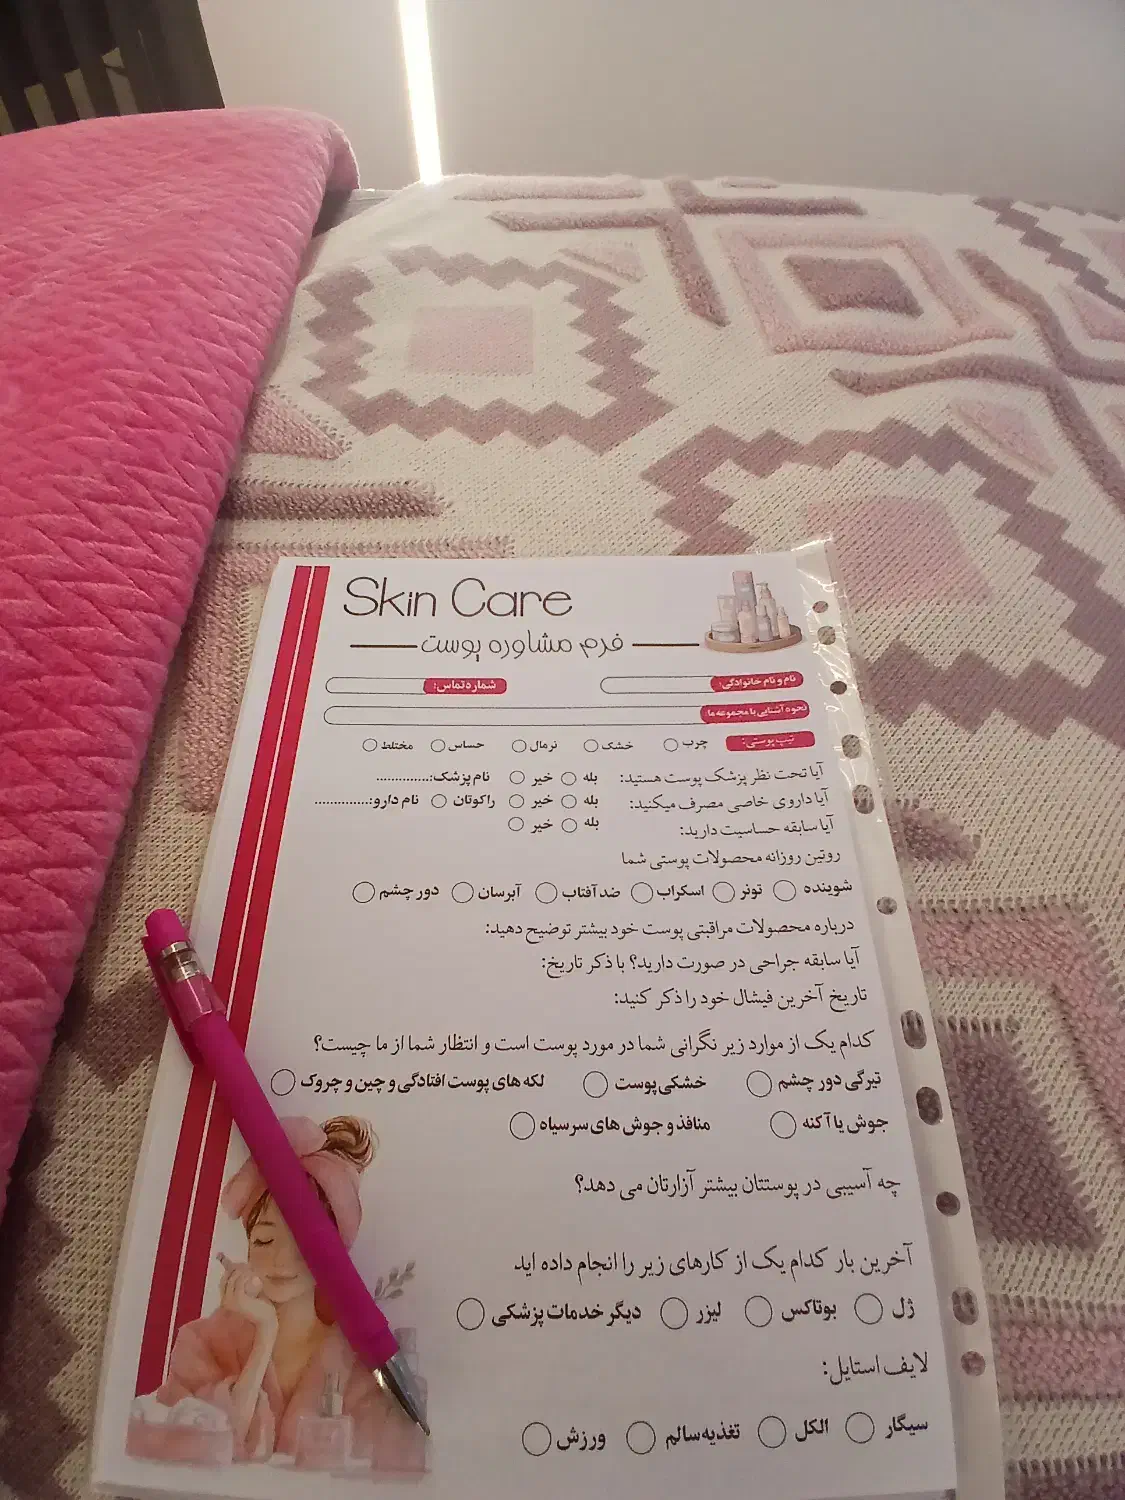 Skin Care
فرم مشاوره پوست
نام و نام خانوادگی: شماره تماس:
نحوه آشنایی با مجموعه ما:
تیپ پوستی: چرب خشک نرمال حساس مختلط
آیا تحت نظر پزشک پوست هستید: بله خیر نام پزشک:..............
آیا داروی خاصی مصرف میکنید: بله خیر راکوتان نام دارو:..............
آیا سابقه حساسیت دارید: بله خیر
روتین روزانه محصولات پوستی شما
شوینده تونر اسکراب ضد آفتاب آبرسان دور چشم
درباره محصولات مراقبتی پوست خود بیشتر توضیح دهید:
آیا سابقه جراحی در صورت دارید؟ با ذکر تاریخ:
تاریخ آخرین فیشال خود را ذکر کنید:
کدام یک از موارد زیر نگرانی شما در مورد پوست است و انتظار شما از ما چیست؟
تیرگی دور چشم خشکی پوست لکه های پوست افتادگی و چین و چروک
جوش یا آکنه منافذ و جوش های سرسیاه
چه آسیبی در پوستتان بیشتر آزارتان می دهد؟
آخرین بار کدام یک از کارهای زیر را انجام داده اید
ژل بوتاکس لیزر دیگر خدمات پزشکی
لایف استایل:
سیگار الکل تغذیه سالم ورزش